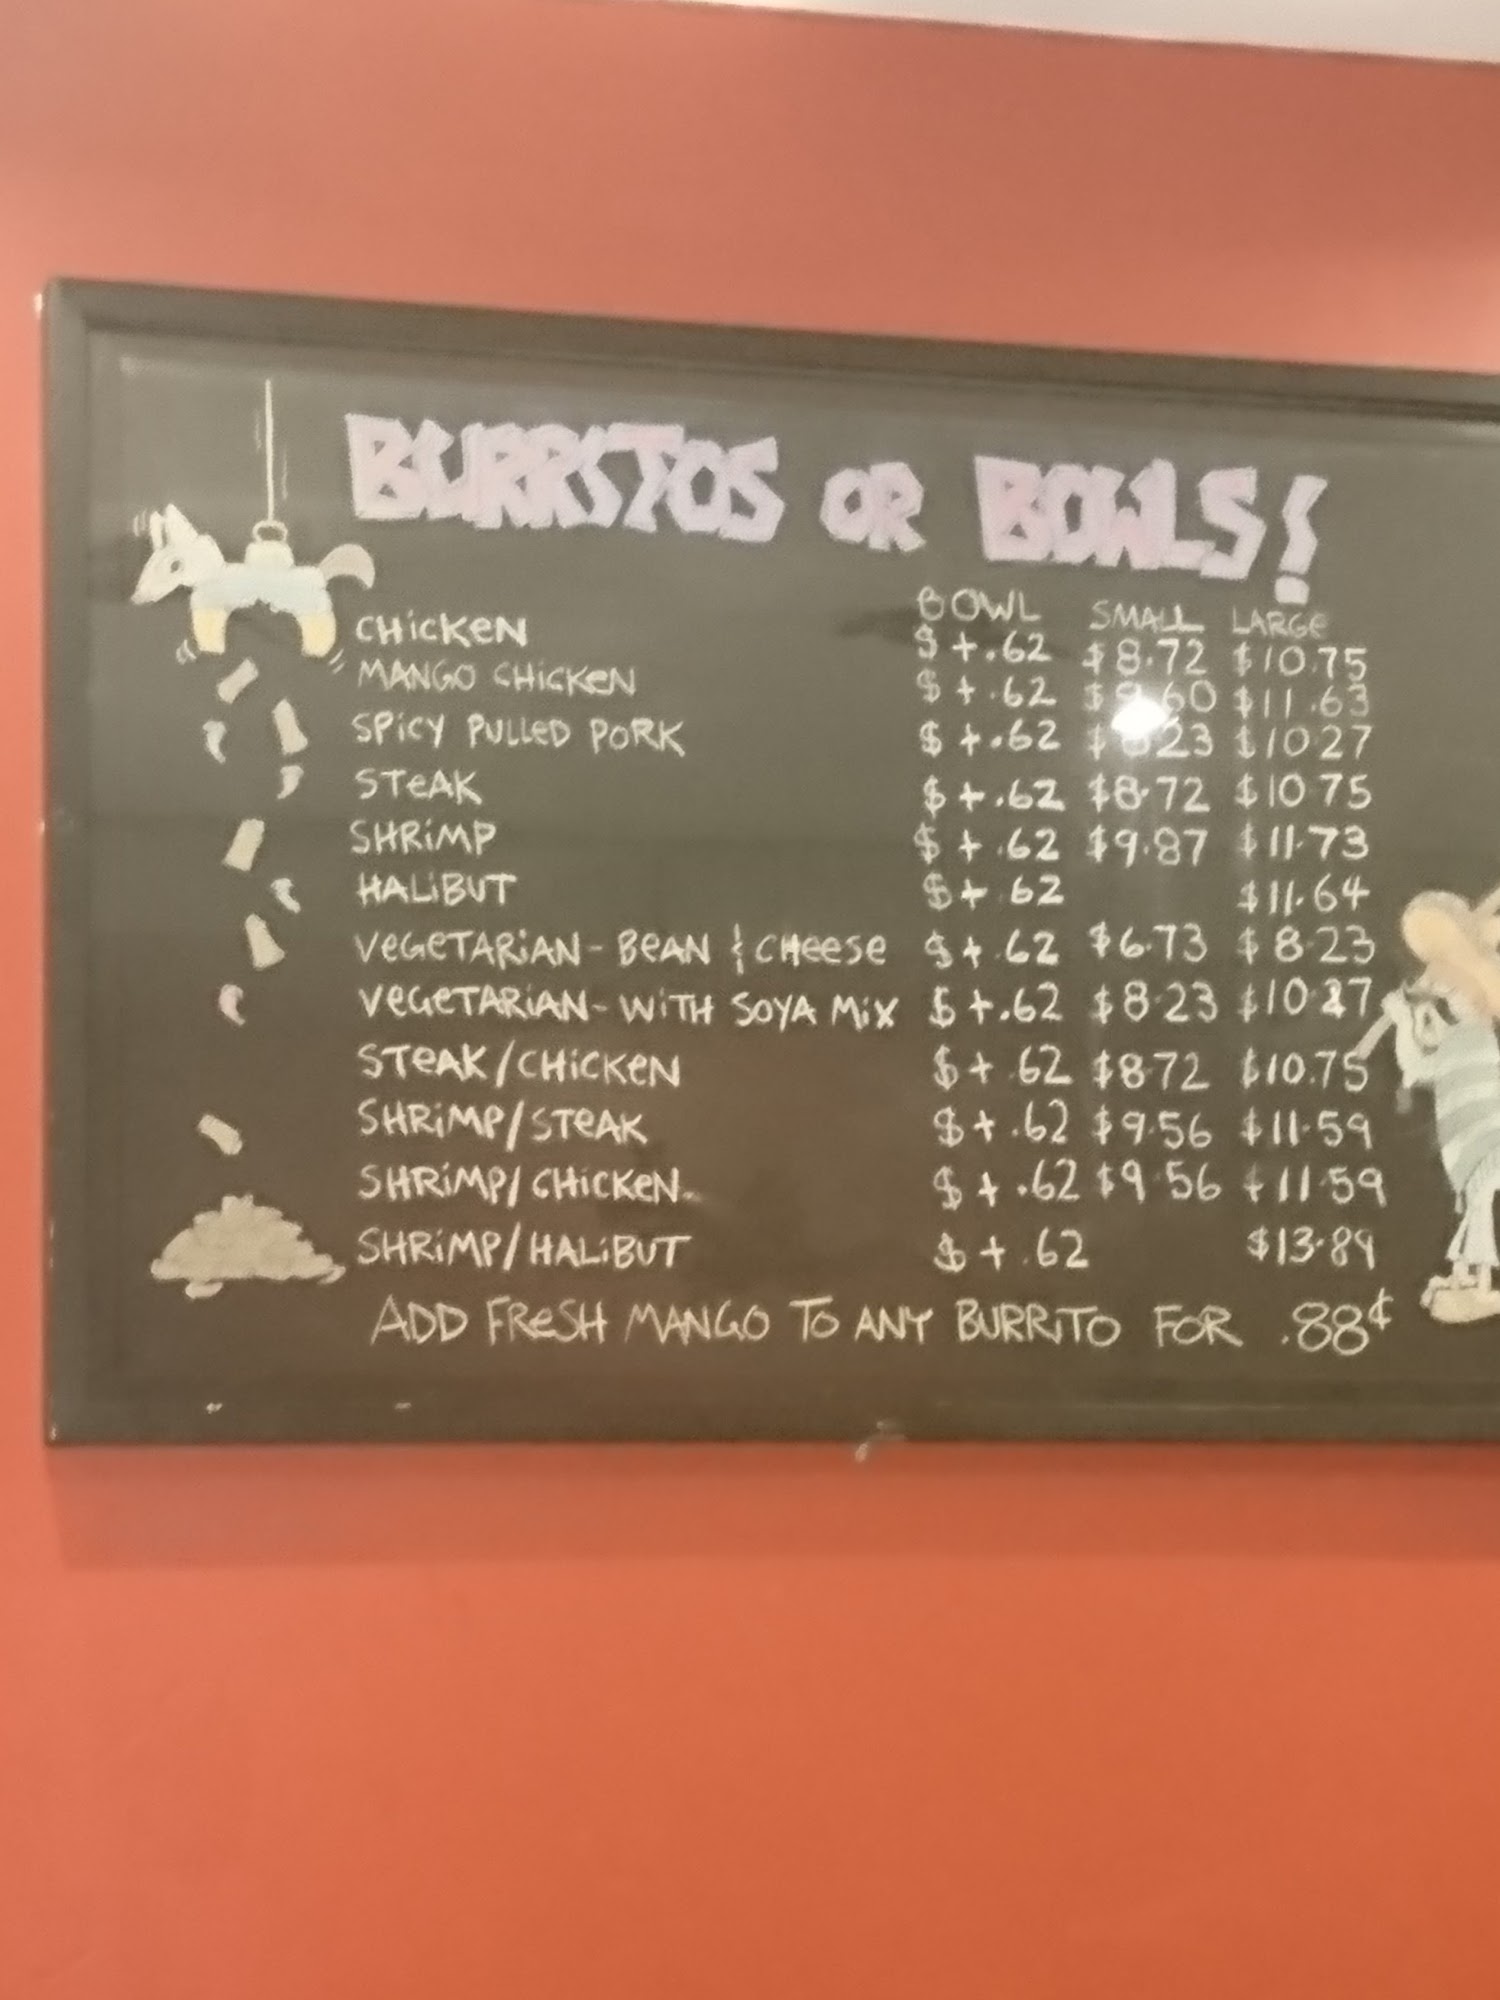 BURRITOS OR BOWLS!
BOWL SMALL LARGE
CHiCKeN $+.62 $8.72 $10.75
MANGO CHiCKeN $+.62 $11.63
SPiCY PULLeD PORK $+.62 $10.27
STeAK $+.62 $8.72 $10.75
SHRiMP $+.62 $9.87 $11.73
HALiBUT $+.62 $11.64
VeGeTARiAN- BeAN & CHeese $+.62 $6.73 $8.23
VeGeTARiAN- WiTH SOYA MiX $+.62 $8.23 $10.27
STeAK/CHiCKeN $+.62 $8.72 $10.75
SHRiMP/STeAK $+.62 $9.56 $11.59
SHRiMP/CHiCKeN $+.62 $9.56 $11.59
SHRiMP/HALiBUT $+.62 $13.89
ADD FReSH MANGO TO ANY BURRiTO FOR .88¢